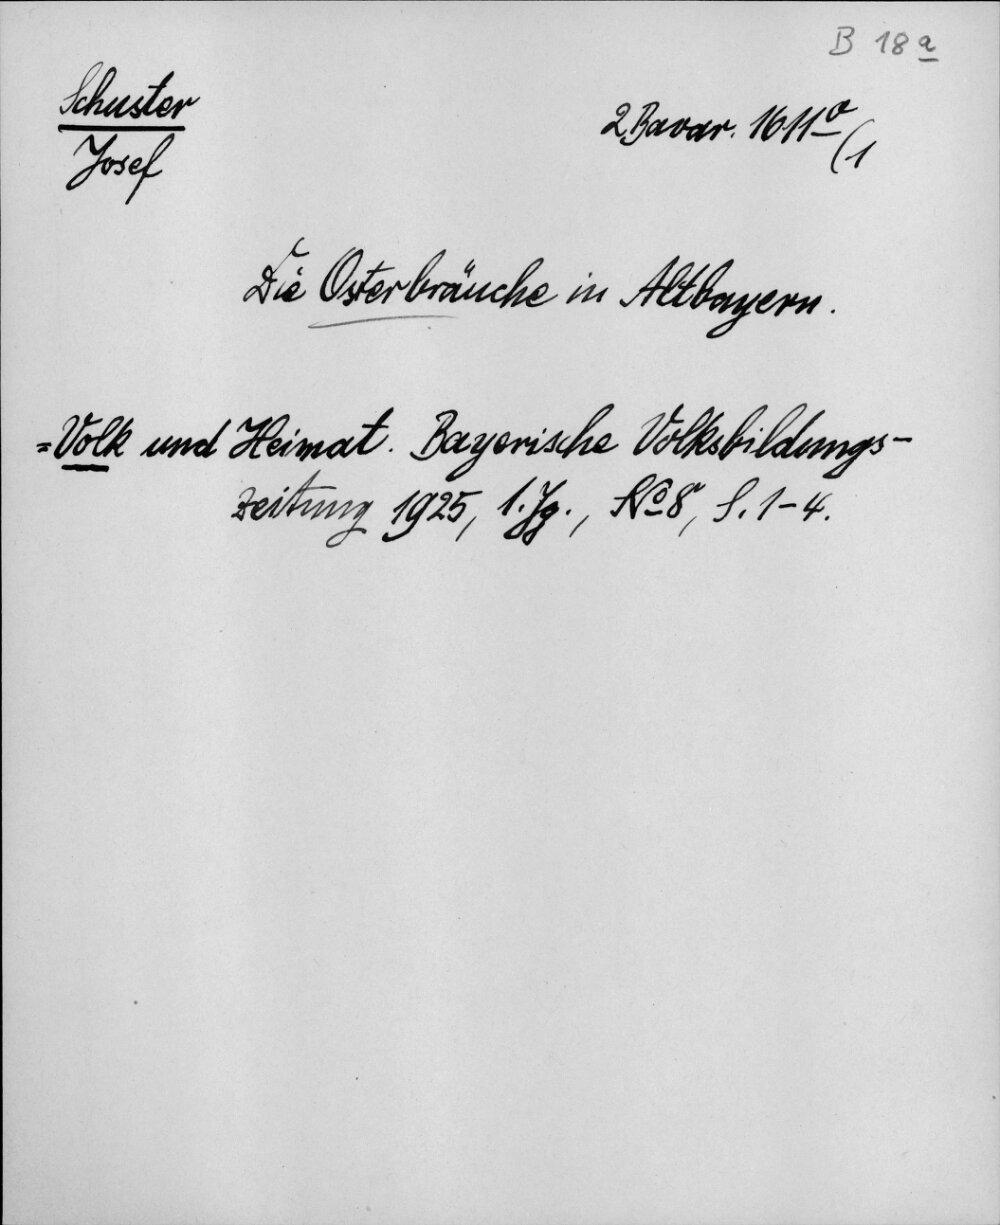 B 18 a
Schuster
Josef
2 Bavar. 1611 a/(1
Die Osterbräuche in Altbayern.
= Volk und Heimat. Bayerische Volksbildungs-
zeitung 1925, 1. Jg., No 8, S. 1-4.